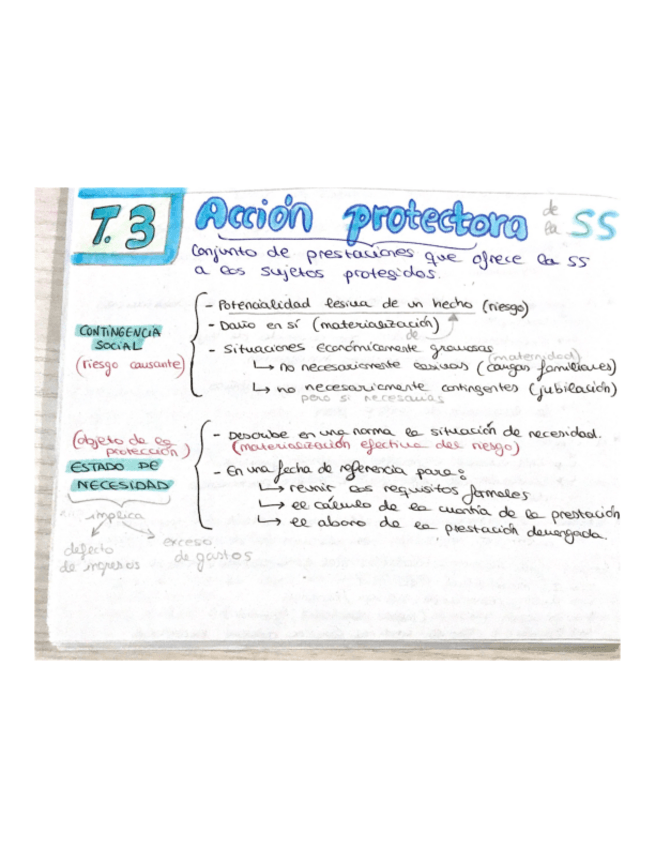 T.3 Acción protectora de la SS
Conjunto de prestaciones que ofrece la SS
a los sujetos protegidos.
CONTINGENCIA
SOCIAL
(riesgo causante)
- Potencialidad lesiva de un hecho (riesgo)
- Daño en sí (materialización)
de
- Situaciones económicamente gravosas
(maternidad)
↳ no necesariamente lesivas (cargas familiares)
↳ no necesariamente contingentes (jubilación)
pero si necesarias
(objeto de la
protección)
ESTADO DE
NECESIDAD
implica
defecto
de ingresos
exceso
de gastos
- Describe en una norma la situación de necesidad.
(materialización efectiva del riesgo)
- En una fecha de referencia para:
↳ reunir los requisitos formales
↳ el cálculo de la cuantía de la prestación
↳ el abono de la prestación devengada.